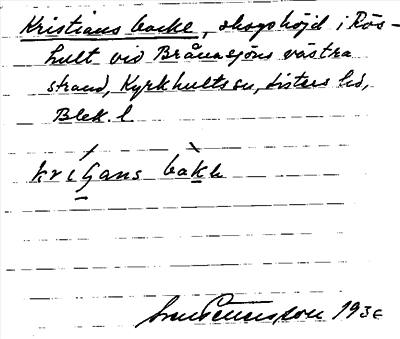 Kristians backe, skogshöjd i Rös-
hult vid Brånasjöns västra
strand, Kyrkhults sn, Listers hd,
Blek. l
bakk
1936